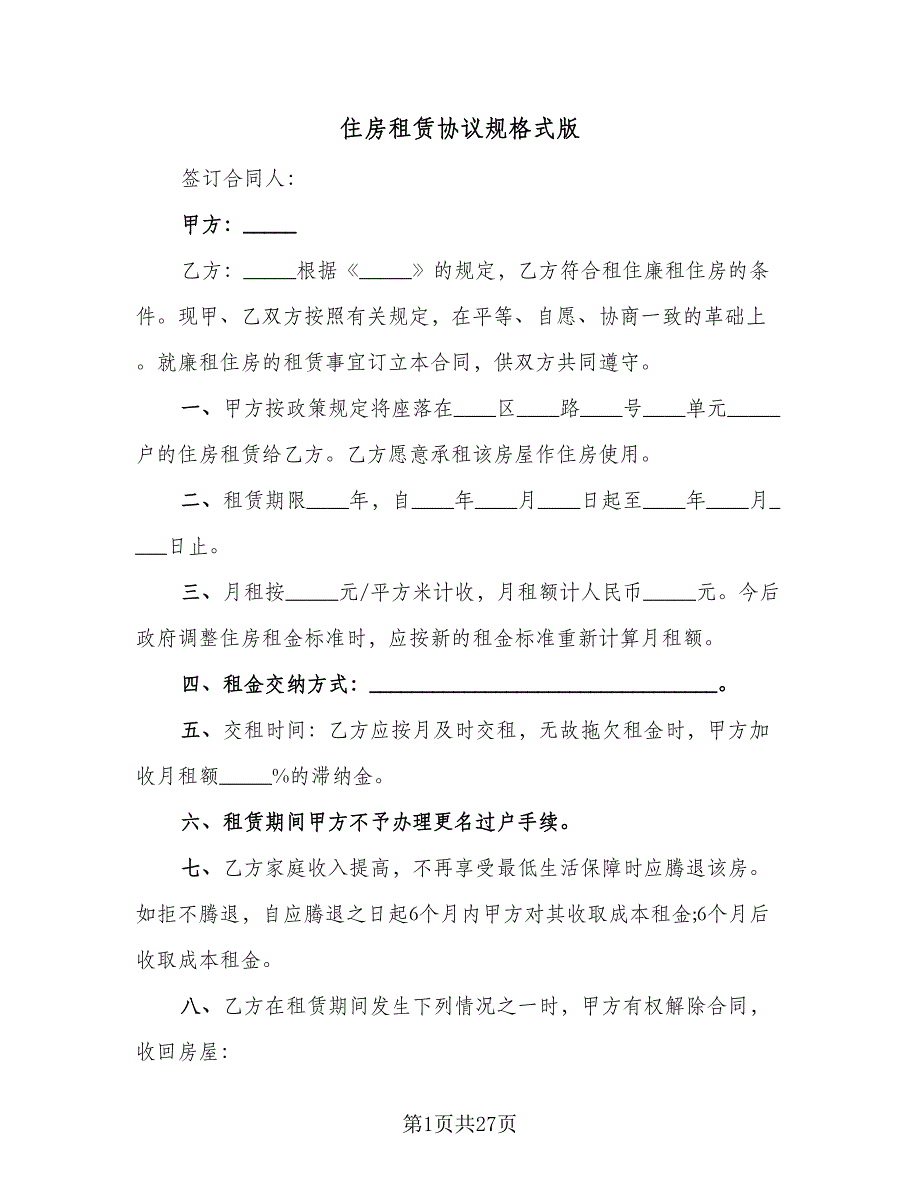 住房租赁协议规格式版
签订合同人：
甲方：_____
乙方：_____根据《_____》的规定，乙方符合租住廉租住房的条
件。现甲、乙双方按照有关规定，在平等、自愿、协商一致的革础上
。就廉租住房的租赁事宜订立本合同，供双方共同遵守。
一、甲方按政策规定将座落在____区____路____号____单元_____
户的住房租赁给乙方。乙方愿意承租该房屋作住房使用。
二、租赁期限____年，自____年____月____日起至____年____月_
___日止。
三、月租按_____元/平方米计收，月租额计人民币_____元。今后
政府调整住房租金标准时，应按新的租金标准重新计算月租额。
四、租金交纳方式：_________________________________。
五、交租时间：乙方应按月及时交租，无故拖欠租金时，甲方加
收月租额_____%的滞纳金。
六、租赁期间甲方不予办理更名过户手续。
七、乙方家庭收入提高，不再享受最低生活保障时应腾退该房。
如拒不腾退，自应腾退之日起6个月内甲方对其收取成本租金;6个月后
收取成本租金。
八、乙方在租赁期间发生下列情况之一时，甲方有权解除合同，
收回房屋：
第1页共27页